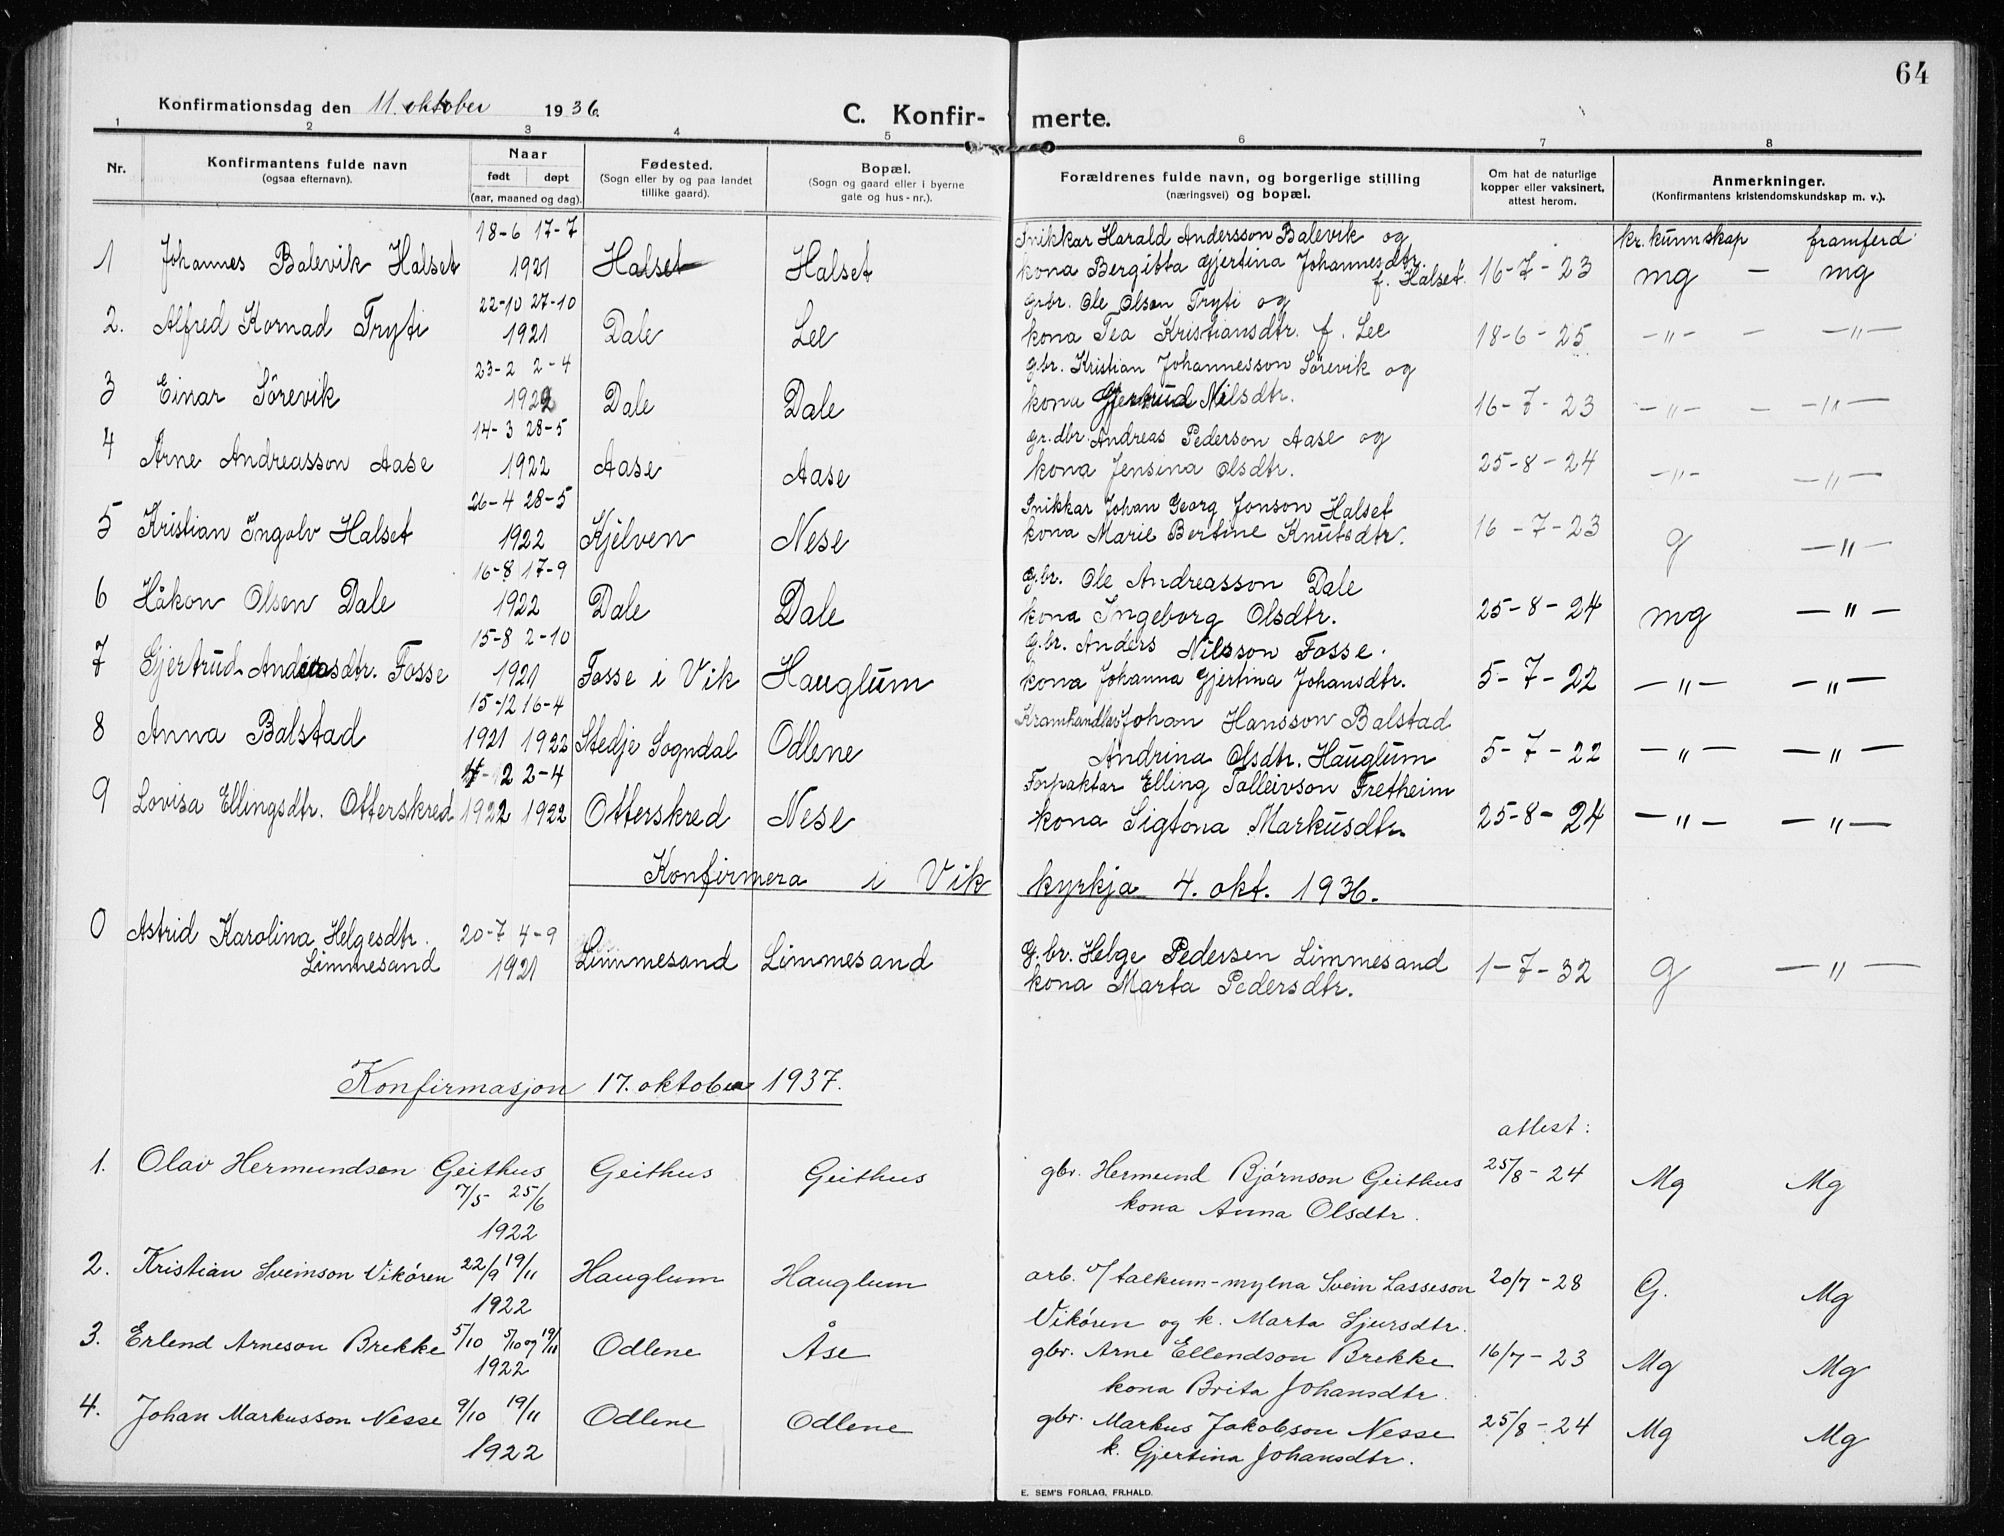 64
Konfirmationsdag den 11. oktober 1936.
C. Konfir- merte.
1 2 3 4 5 6 7 8
Nr.
Konfirmantens fulde navn
(ogsaa efternavn).
Naar
født døpt
(aar, maaned og dag).
Fødested.
(Sogn eller by og paa landet
tillike gaard).
Bopæl.
(Sogn og gaard eller i byerne
gate og hus-nr.).
Forældrenes fulde navn, og borgerlige stilling
(næringsvei) og bopæl.
Om hat de naturlige
kopper eller vaksinert,
attest herom.
Anmerkninger.
(Konfirmantens kristendomskundskap m. v.).
kr. kunnskap framferd
18-6 17-7 Snikkar Harald Andersson Balevik og
1 Johannes Balevik Halset 1921 Halset Halset kona Bergitta Gjertina Johannesdtr. f. Halset. 16-7-23 mg - mg
22-10 27-10 Gbr. Ole Olsen Tryti og
2. Alfred Kornad Tryti 1921 Dale Lee kona Tea Kristiansdtr. f. Lee 18-6-25 -"- - -"-
23-2 2-4 Gbr. Kristian Johannesson Sörevik og
3 Einar Sörevik 1922 Dale Dale kona Gjertrud Nilsdtr. 16-7-23 -"- - -"-
14-3 28-5 Gr.dbr. Andreas Pederson Aase og
4 Arne Andreasson Aase 1922 Aase Aase kona Jensina Olsdtr. 25-8-24 -"- -"-
26-4 28-5 Snikkar Johan Georg Jonson Halset
5 Kristian Ingolv Halset 1922 Kjelven Nese kona Marie Bertine Knutsdtr. 16-7-23 g -"-
16-8 17-9 G.br. Ole Andreasson Dale
6 Håkon Olsen Dale 1922 Dale Dale kona Ingeborg Olsdtr. 25-8-24 mg -"-
15-8 2-10 G.br. Anders Nilsson Fosse.
7 Gjertrud Andersdtr. Fosse 1921 Fosse i Vik Hauglum kona Johanna Gjertina Johansdtr. 5-7-22 -"- -"-
15-12 16-4 Kramhandlar Johan Hansson Balstad
8 Anna Balstad 1921 1922 Stedje Sogndal Odlene Andrina Olsdtr. Hauglum 5-7-22 -"- -"-
2 2-4 Forpaktar Elling Tolleivson Fretheim
9 Lovisa Ellingsdtr. Otterskred 1922 1922 Otterskred Nese kona Sigtona Markusdtr. 25-8-24 -"- -"-
Konfirmera i Vik kyrkja 4. okt. 1936.
0 Astrid Karolina Helgesdtr. 20-7 4-9 G.br. Helge Pedersen Limmesand
Limmesand 1921 Limmesand Limmesand kona Marta Pedersdtr. 1-7-32 g -"-
Konfirmasjon 17. oktober 1937.
attest:
1. Olav Hermundson Geithus Geithus Geithus gbr. Hermund Bjørnson Geithus 25/8-24 Mg Mg
7/5 25/6 kona Anna Olsdtr.
1922
2. Kristian Sveinson Vikóren 22/9 19/11 Hauglum Hauglum arb. v/ talkum-mylna Svein Lasseson 20/7-28 G. Mg
1922 Vikóren og k. Marta Sjursdtr.
3. Erlend Arneson Brekke 5/10 5/10 og 19/11 Odlene Åse gbr. Arne Ellendson Brekke 16/7-23 Mg Mg
1922 kona Brita Johansdtr.
4. Johan Markusson Nesse 9/10 19/11 Odlene Odlene gbr. Markus Jakobson Nesse 25/8-24 Mg Mg
1922 k. Gjertina Johansdtr.
E. SEM'S FORLAG, FR.HALD.